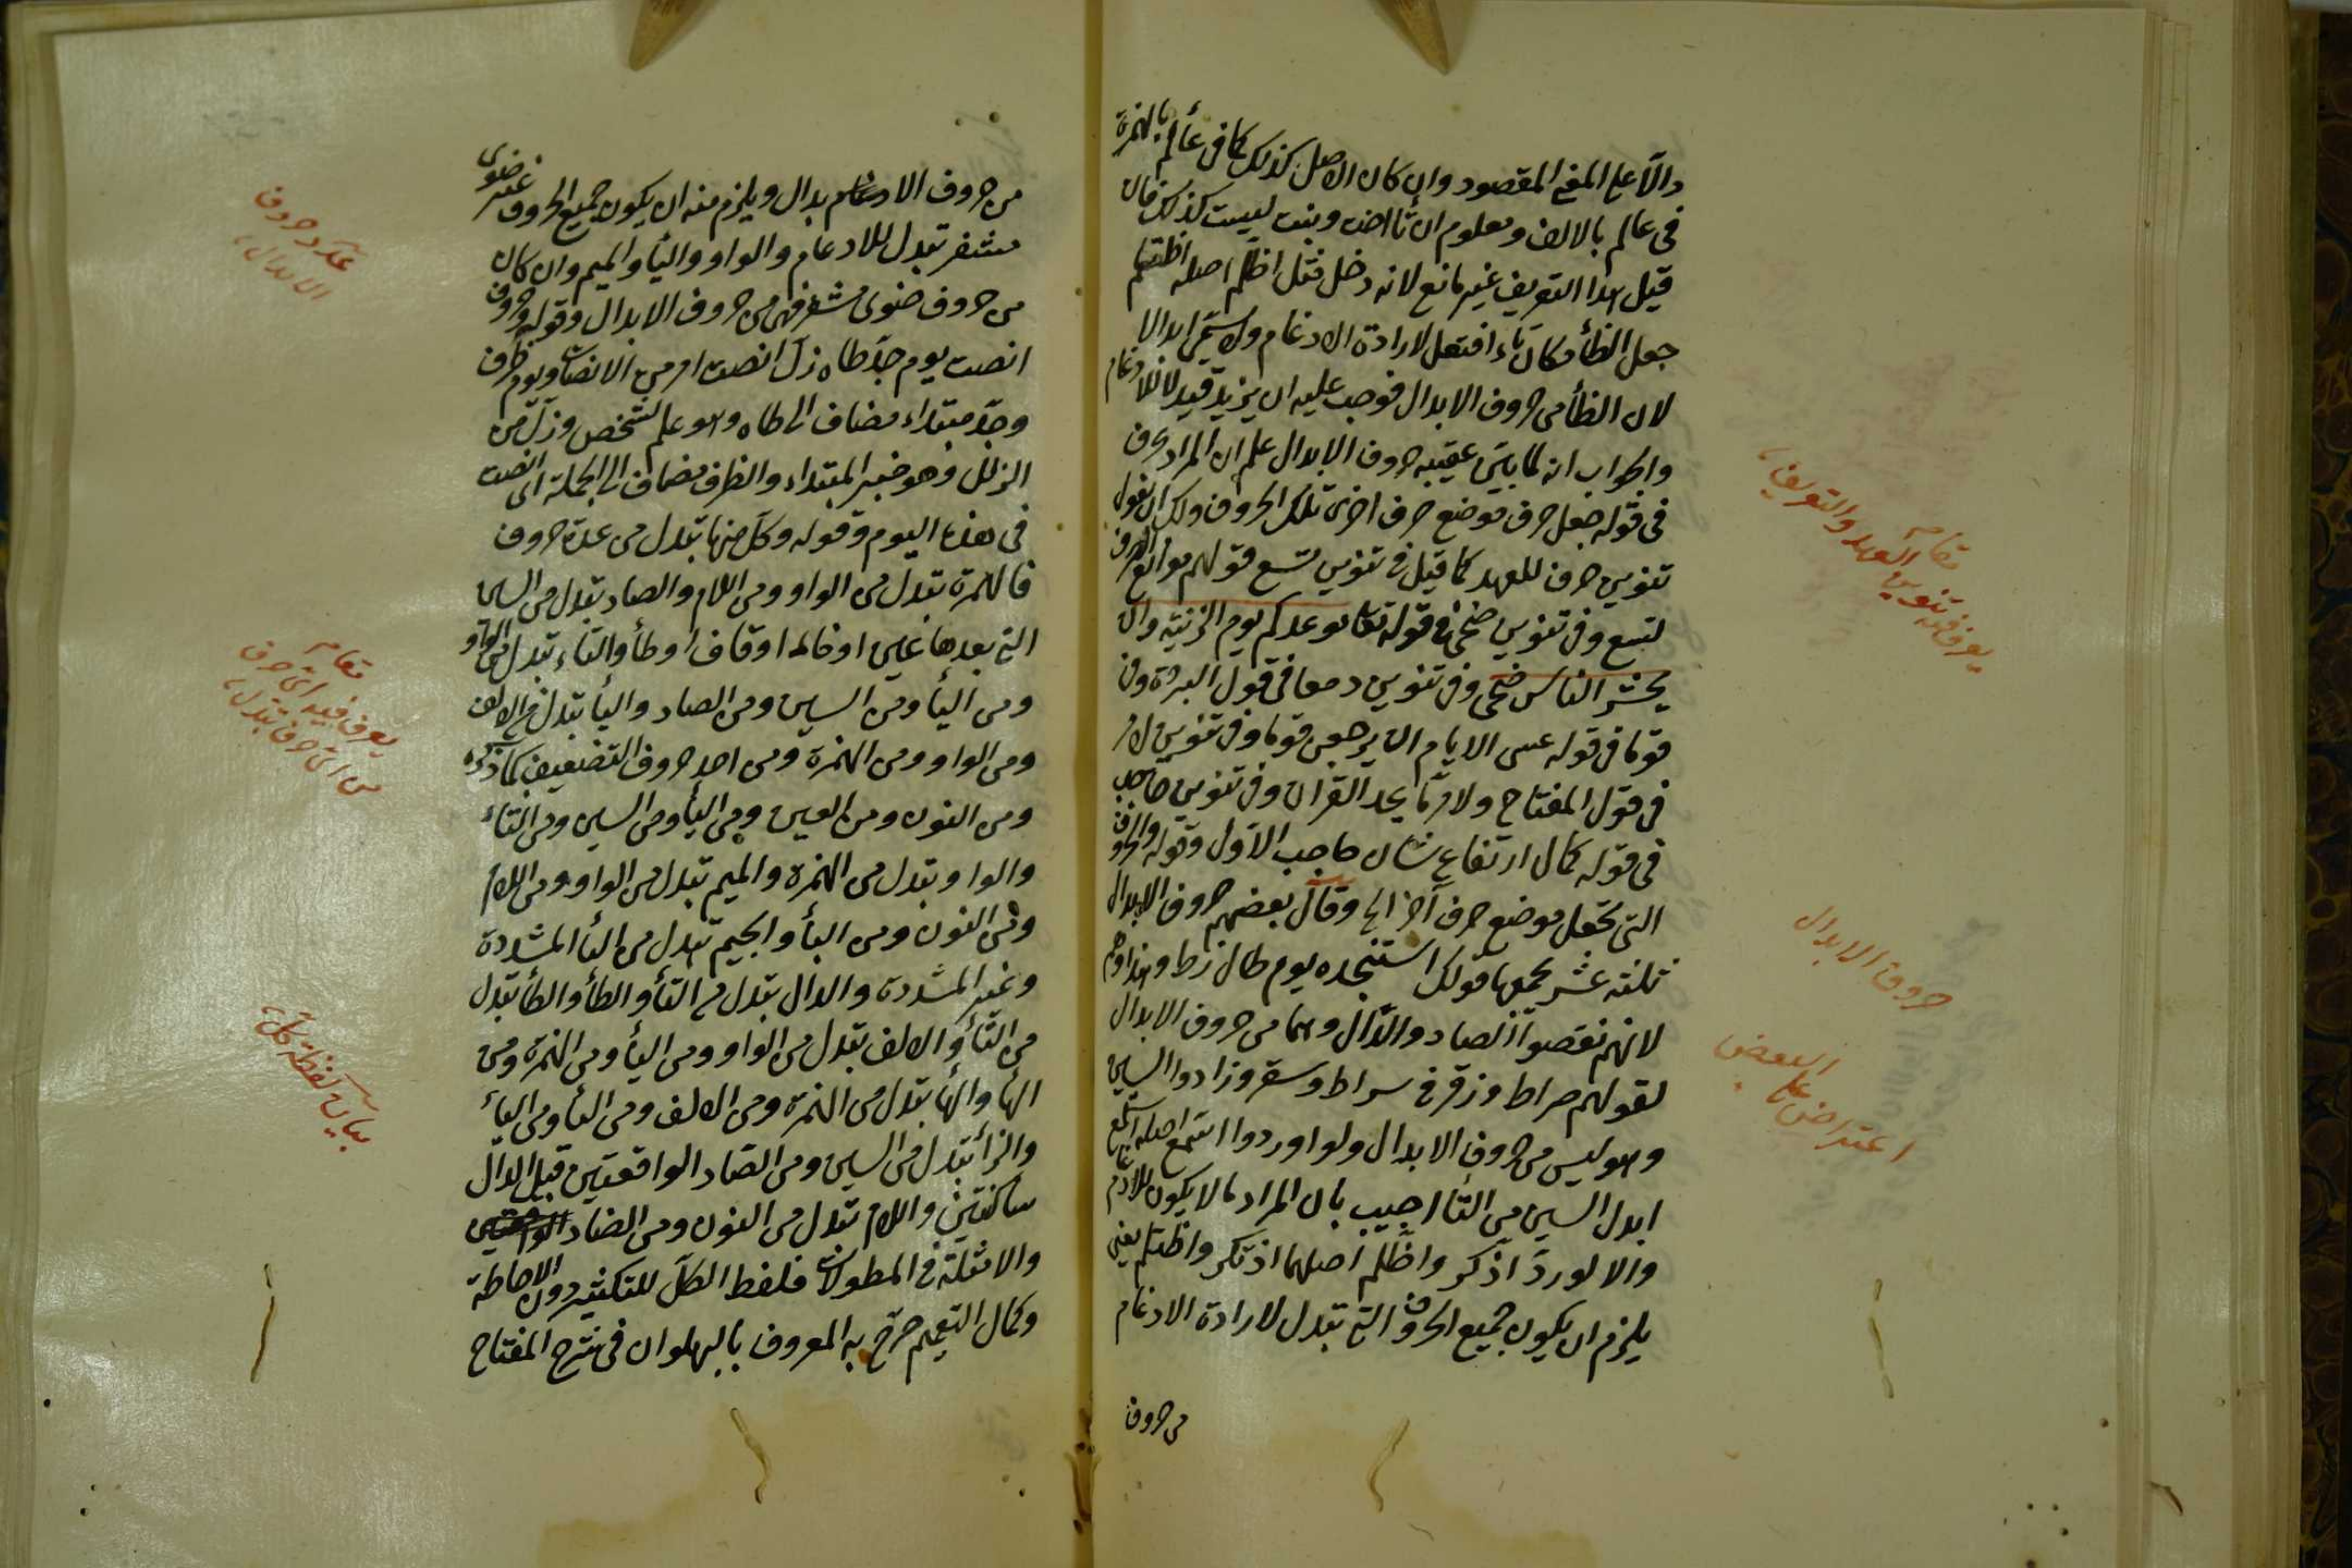 دالا على المعنى المقصود وان كان الاصل كذلك كما فى عألم بالهمزة
فى عالم بالالف ومعلوم ان تا اخت وبنت ليست كذلك فان
قيل هذا التعريف غير مانع لانه دخل مثل اظلم اصله اظتلم
جعل الظأ مكان تاء افتعل لارادة الادغام ولا يسمى ابدالا
لان الظأ من حروف الابدال فوجب عليه ان يزيد قيد لا للادغام
والجواب انه لما بين عقيبه حروف الابدال علم ان المراد بحرف
فى قوله جعل حرف موضع حرف اخرى تلك الحروف ولك ان تقول
تنوين حرف للعهد كما قيل فى تنوين تسع قولهم موانع الصرف
لتسع وفى تنوين ضحى فى قوله تعالى موعدكم يوم الزينة وان
يحشر الناس ضحى وفى تنوين دمعا فى قول البردة وفى
قوما فى قوله عسى الايام ان يرجعن قوما وفى تنوين
فى قول المفتاح ولا يحد القرآن وفى تنوين حاجب
فى قوله كمال ارتفاع شان حاجب الاول وقوله والحروف
التى تجعل موضع حرف آخر الخ وقال بعضهم حروف الابدال
ثلثة عشر يجمعها قولك استنجده يوم طال زط وهذا وهم
لانهم نقصوا الصاد والزال وهما من حروف الابدال
لقولهم صراط وزقر فى سراط وسقر وزادوا السين
وهو ليس من حروف الابدال ولو اوردوا اسمع اصله استمع
ابدل السين من التا اجيب بان المراد ما لا يكون للادغام
والا لورد اذكر واظلم اصلهما اذتكر واظتلم يعنى
يلزم ان يكون جميع الحروف التى تبدل لارادة الادغام
من حروف
يعرف فيه تنوين العهد والتعريف
مقام
حروف الابدال
اعتراض على البعض
من حروف الادغام بدال ويلزم منه ان يكون جميع الحروف غير ضوى
مشفر تبدل للادغام والواو واليأ والميم وان كان
من حروف ضوى مشفر فهى من حروف الابدال وقوله وحروف
انصت يوم جد طاه زل انصت امر من الانصات ويوم ظرف
وجد مبتداء مضاف الى طاه وهو علم لشخص وزل من
الزلل وهو خبر المبتداء والظرف مضاف الى الجملة اى انصت
فى هذا اليوم وقوله وكل منها تبدل من عدة حروف
فالهمزة تبدل من الواو ومن اللام والصاد تبدل من السين
التى بعدها غين او خاء او قاف او طأ والتاء تبدل من الواو
ومن اليأ ومن السين ومن الصاد واليأ تبدل من الالف
ومن الواو ومن الهمزة ومن احد حروف التضعيف كما ذكره
ومن النون ومن العين ومن اليأ ومن السين ومن التاء
والواو تبدل من الهمزة والميم تبدل من الواو ومن اللام
ومن النون ومن البأ والجيم تبدل من اليأ المشددة
وغير المشددة والدال تبدل من التأ والطأ والطأ تبدل
من التأ والالف تبدل من الواو ومن اليأ ومن الهمزة ومن
الهأ والهأ تبدل من الهمزة ومن الالف ومن اليأ ومن اليأ
والزأ تبدل من السين ومن الصاد الواقعتين قبل الدال
ساكنتين واللام تبدل من النون ومن الضاد
والامثلة فى المطولات فلفظ الكل للتكثير دون الاحاطة
وكمال التعميم صرح به المعروف بالبهلوان فى شرح المفتاح
عدد حروف
الابدال
مقام
يعرف فيه اى حرف
من اى حرف تبدل
بيان لفظة كل